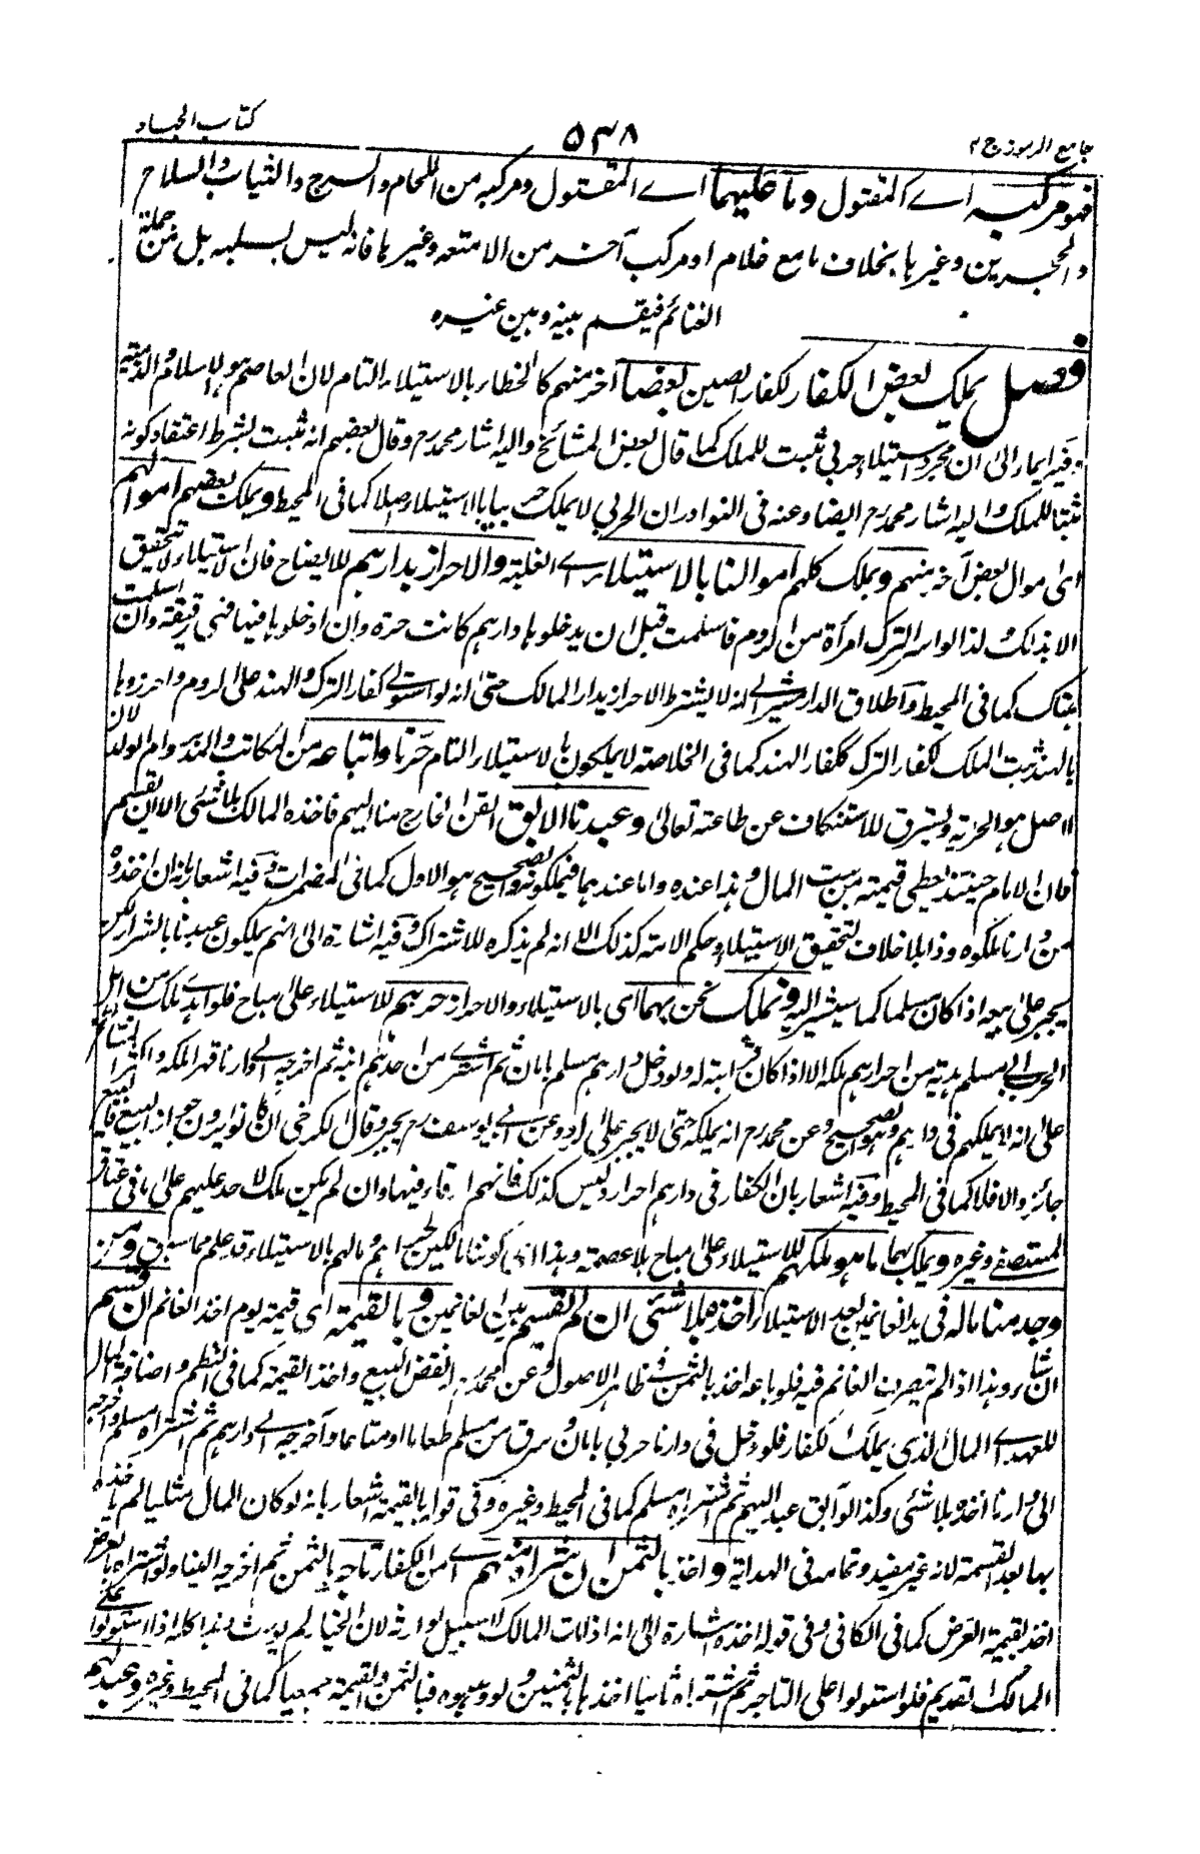 جامع الرموز ج ٢
٥٣٨
كتاب الجهاد
فهو مركبه اے المقتول وما عليهما اے المقتول ومركبه من اللجام والسرج والثياب والسلاح
والحجرين وغيرها بخلاف ما مع غلام او مركب آخر من الامتعة وغيرها فانه ليس بسلبه بل من جملة
الغنائم فيقسم بينه وبين غيره
فصل يملك بعض الكفار ككفار الصين بعضا آخر منهم كالخطار بالاستيلاء التام لان العاصم هو الاسلام والذمية
وفيه ايماء الى ان مجرد استيلاء حربى مثبت للملك كما قال بعض المشائخ واليه اشار محمد رح وقال بعضهم انه مثبت بشرط اعتقاد كونه
مثبتا للملك واليه اشار محمد رح ايضا وعنه فى النوادر ان الحربي لا يملك حربيا بالاستيلاء اصلا كما فى المحيط ويملك بعضهم اموالهم
اى اموال بعض آخر منهم ويملك كلهم اموالنا بالاستيلاء اے الغلبة والاحراز بدارهم للايضاح فان الاستيلاء لا يتحقق
الا بذلك ولذا لو اسر الترك امرأة من الروم فاسلمت قبل ان يدخلوها دارهم كانت حرة وان ادخلوها فيها فهى رقيقة وان اسلمت
هناك كما فى المحيط واطلاق الدار مشير اے انه لا يشترط الاحراز بدار المالك حتى انه لو استولى كفار الترك والهند على الروم واحرزوها
بالهند ثبت الملك لكفار الترك ككفار الهند كما فى الخلاصة لا يملكون بالاستيلاء التام حرنا واتباعه من المكاتب والمدبر وام الولد لان
الاصل هو الحرية ويسترق للاستنكاف عن طاعته تعالى وعبدنا الآبق القن الخارج منا اليهم فاخذه المالك بلا شئ الا ان يقسم
فان الامام حينئذ يعطى قيمته من بيت المال وهذا عنده واما عندهما فيملكونه والصحيح هو الاول كما فى المضمرات وفيه اشعار بانه ان اخذوه
من دارنا ملكوه وذا بلا خلاف لتحقق الاستيلاء وحكم الامة كذلك الا انه لم يذكره للاشتراك وفيه اشارة الى انهم يملكون عبدنا بالشراء لكن
يجبر على بيعه اذا كان مسلما كما سيشير اليه ونملك نحن بهما اى بالاستيلاء والاحراز حرهم للاستيلاء على مباح فلو اهدى ملك من اهل
الحرب الى مسلم هدية من احرارهم ملكه الا اذا كان قرابته له ولو دخل دارهم مسلم بامان ثم اشترى من احدهم ابنه ثم اخرجه الى دارنا قهرا ملكه واكثر المشائخ
على انه لا يملكهم فى دارهم وهو الصحيح وعن محمد رح انه يملكه حتى لا يجبر على الرد وعن ابے يوسف رح يجبر وقال الكرخى ان كانوا يرون جواز البيع فالبيع
جائز والا فلا كما فى المحيط وفيه اشعار بان الكفار فى دارهم احرار وليس كذلك فانهم ارقاء فيها وان لم يكن ملك لاحد عليهم على ما فى عتاق
المستصفى وغيره ونملك بهما ما هو ملكهم للاستيلاء على مباح بلا عصمة وهذا اى كوننا مالكين لحرهم ومالهم بالاستيلاء قد علم مما سبق ومن
وجد منا ماله فى يد الغانمين بعد الاستيلاء اخذه بلا شئى ان لم يقسم بين الغانمين وبالقيمة اى قيمة يوم اخذ الغانم ان قسم
ان شاء وهذا اذا لم يتصرف الغانم فيه فلو باعه اخذ بالثمن فى ظاهر الاصول وعن محمد رح انقض البيع واخذ القيمة كما فى النظم واضافة المال
للعهد اے المال الذى يملك الكفار فلو دخل فى دارنا حربي بامان وسرق من مسلم طعاما او متاعا وآخرجه اے دارهم ثم اشتراه مسلم واخرجه
الى دارنا اخذه بلا شئى وكذا لو ابق عبد اليهم ثم اشتراه مسلم كما فى المحيط وغيره وفى قوله بالقيمة اشعار بانه لو كان المال مثليا لم ياخذه
بها بعد القسمة لانه غير مفيد وتمامه فى الهداية واخذ بالثمن ان شراه منهم اے من الكفار تاجر بالثمن ثم اخرجه الينا ولو اشتراه بالعرض
اخذ بقيمة العرض كما فى الكافى وفى قوله اخذه اشارة الى انه اذا مات المالك لا سبيل لوارثه لان الخيار لم يورث وهذا كله اذا استولوا على
المالك القديم فلو استولوا على التاجر ثم اشتراه ثانيا اخذها بالثمنين ولو وهبوه فبالثمن والقيمة جميعا كما فى المحيط وغيره وبعبد لهم